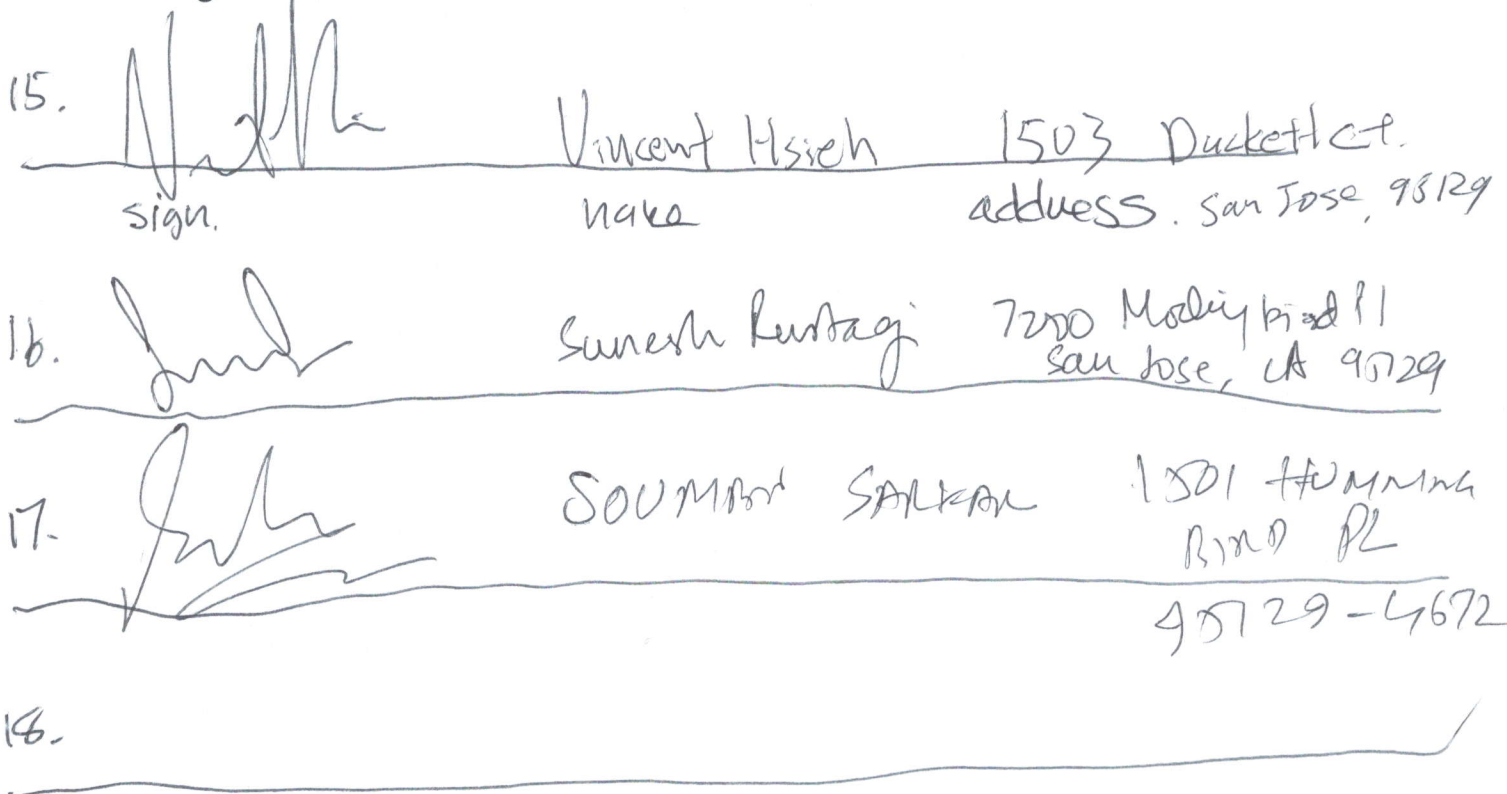 15. Vincent Hsieh 1503 Duckett Ct.
sign. name address. San Jose, 95129
16. Suresh Rustagi 7200 Mockingbird Pl
San Jose, CA 95129
17. SOUMEN SARKAR 1501 HUMMING
BIRD PL
95129-4672
18.